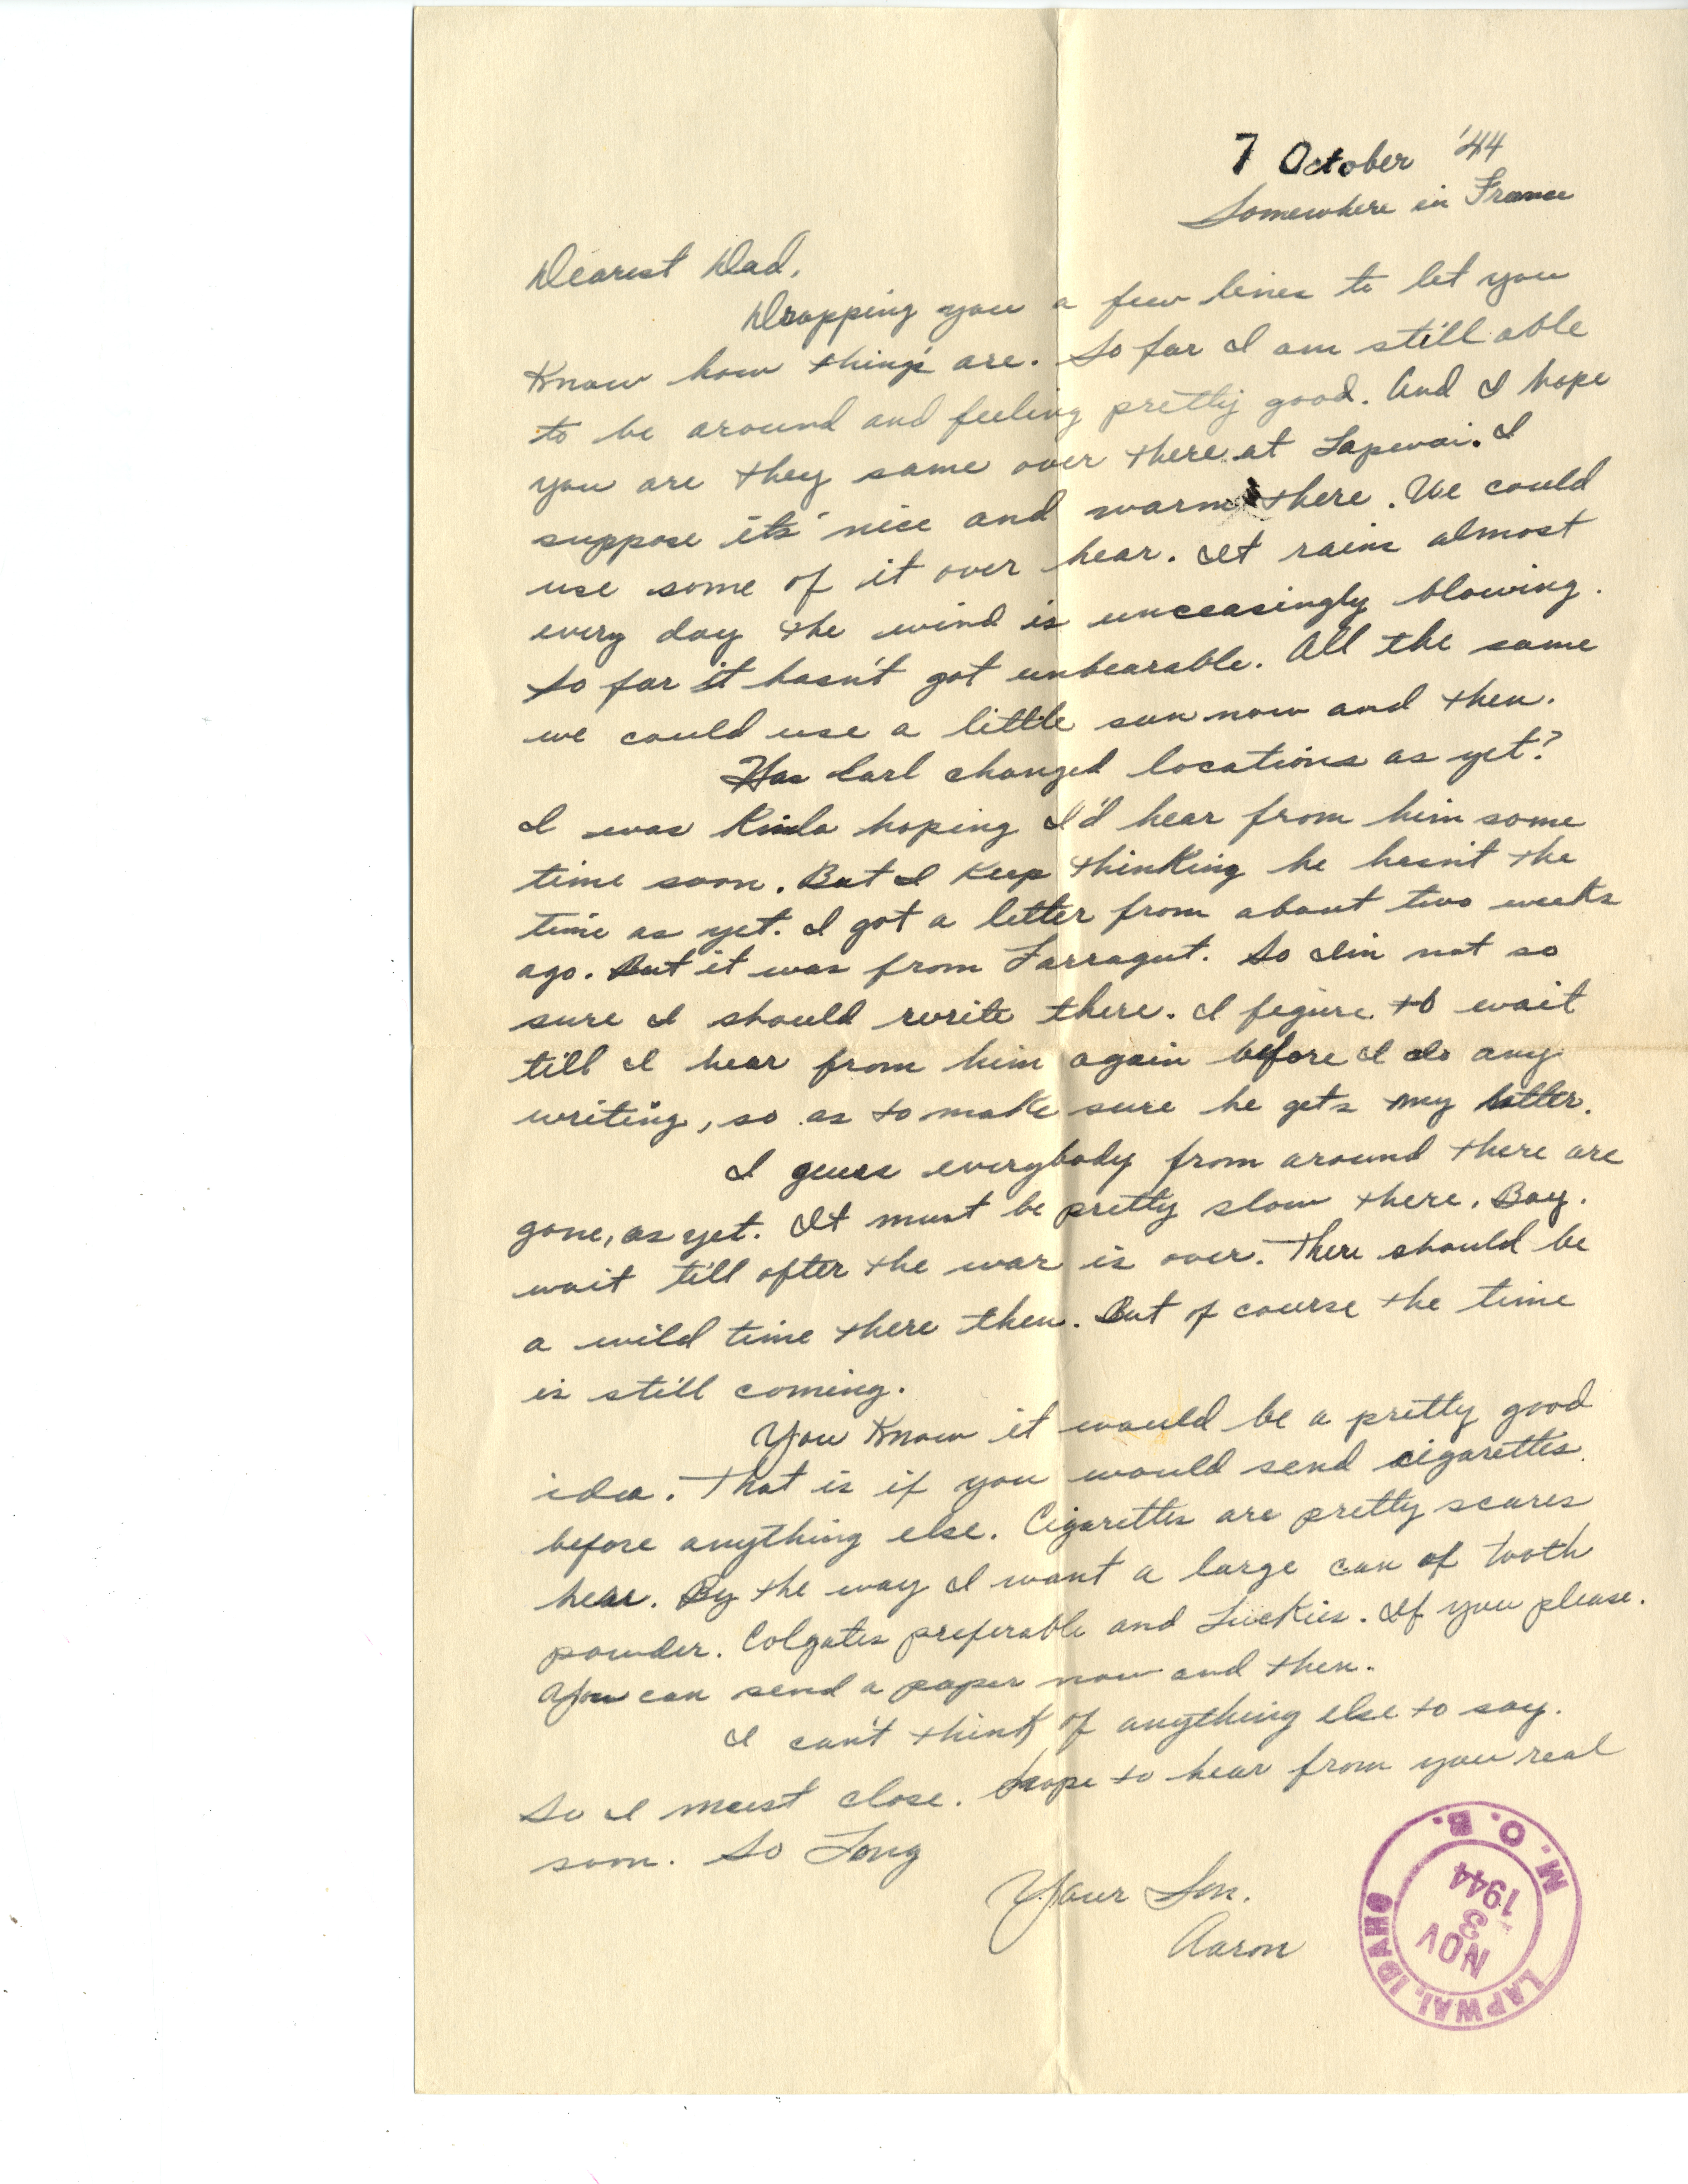 7 October '44
Somewhere in France
Dearest Dad,
Dropping you a few lines to let you
Know how things are. So far I am still able
to be around and feeling pretty good. And I hope
you are they same over there at Lapwai. I
suppose its' nice and warm there. We could
use some of it over hear. It rains almost
every day the wind is unceasingly blowing.
So far it hasn't got unbearable. All the same
we could use a little sun now and then.
Has Carl changed locations as yet?
I was Kinda hoping I'd hear from him some
time soon. But I Keep thinKing he hasn't the
time as yet. I got a letter from about two weeks
ago. But it was from Farragut. So I'm not so
sure I should write there. I figure to wait
till I hear from him again before I do any
writing, so as to maKe sure he gets my letter.
I guess everybody from around there are
gone, as yet. It must be pretty slow there. Boy.
wait till after the war is over. There should be
a wild time there then. But of course the time
is still coming.
You Know it would be a pretty good
idea. That is if you would send cigarettes
before anything else. Cigarettes are pretty scares
hear. By the way I want a large can of tooth
powder. Colgates preferable and LucKies. If you please.
You can send a paper now and then.
I can't think of anything else to say.
So I must close. Hope to hear from you real
soon. So Long
Your Son.
Aaron
M. O. B.
NOV
3
1944
LAPWAI, IDAHO